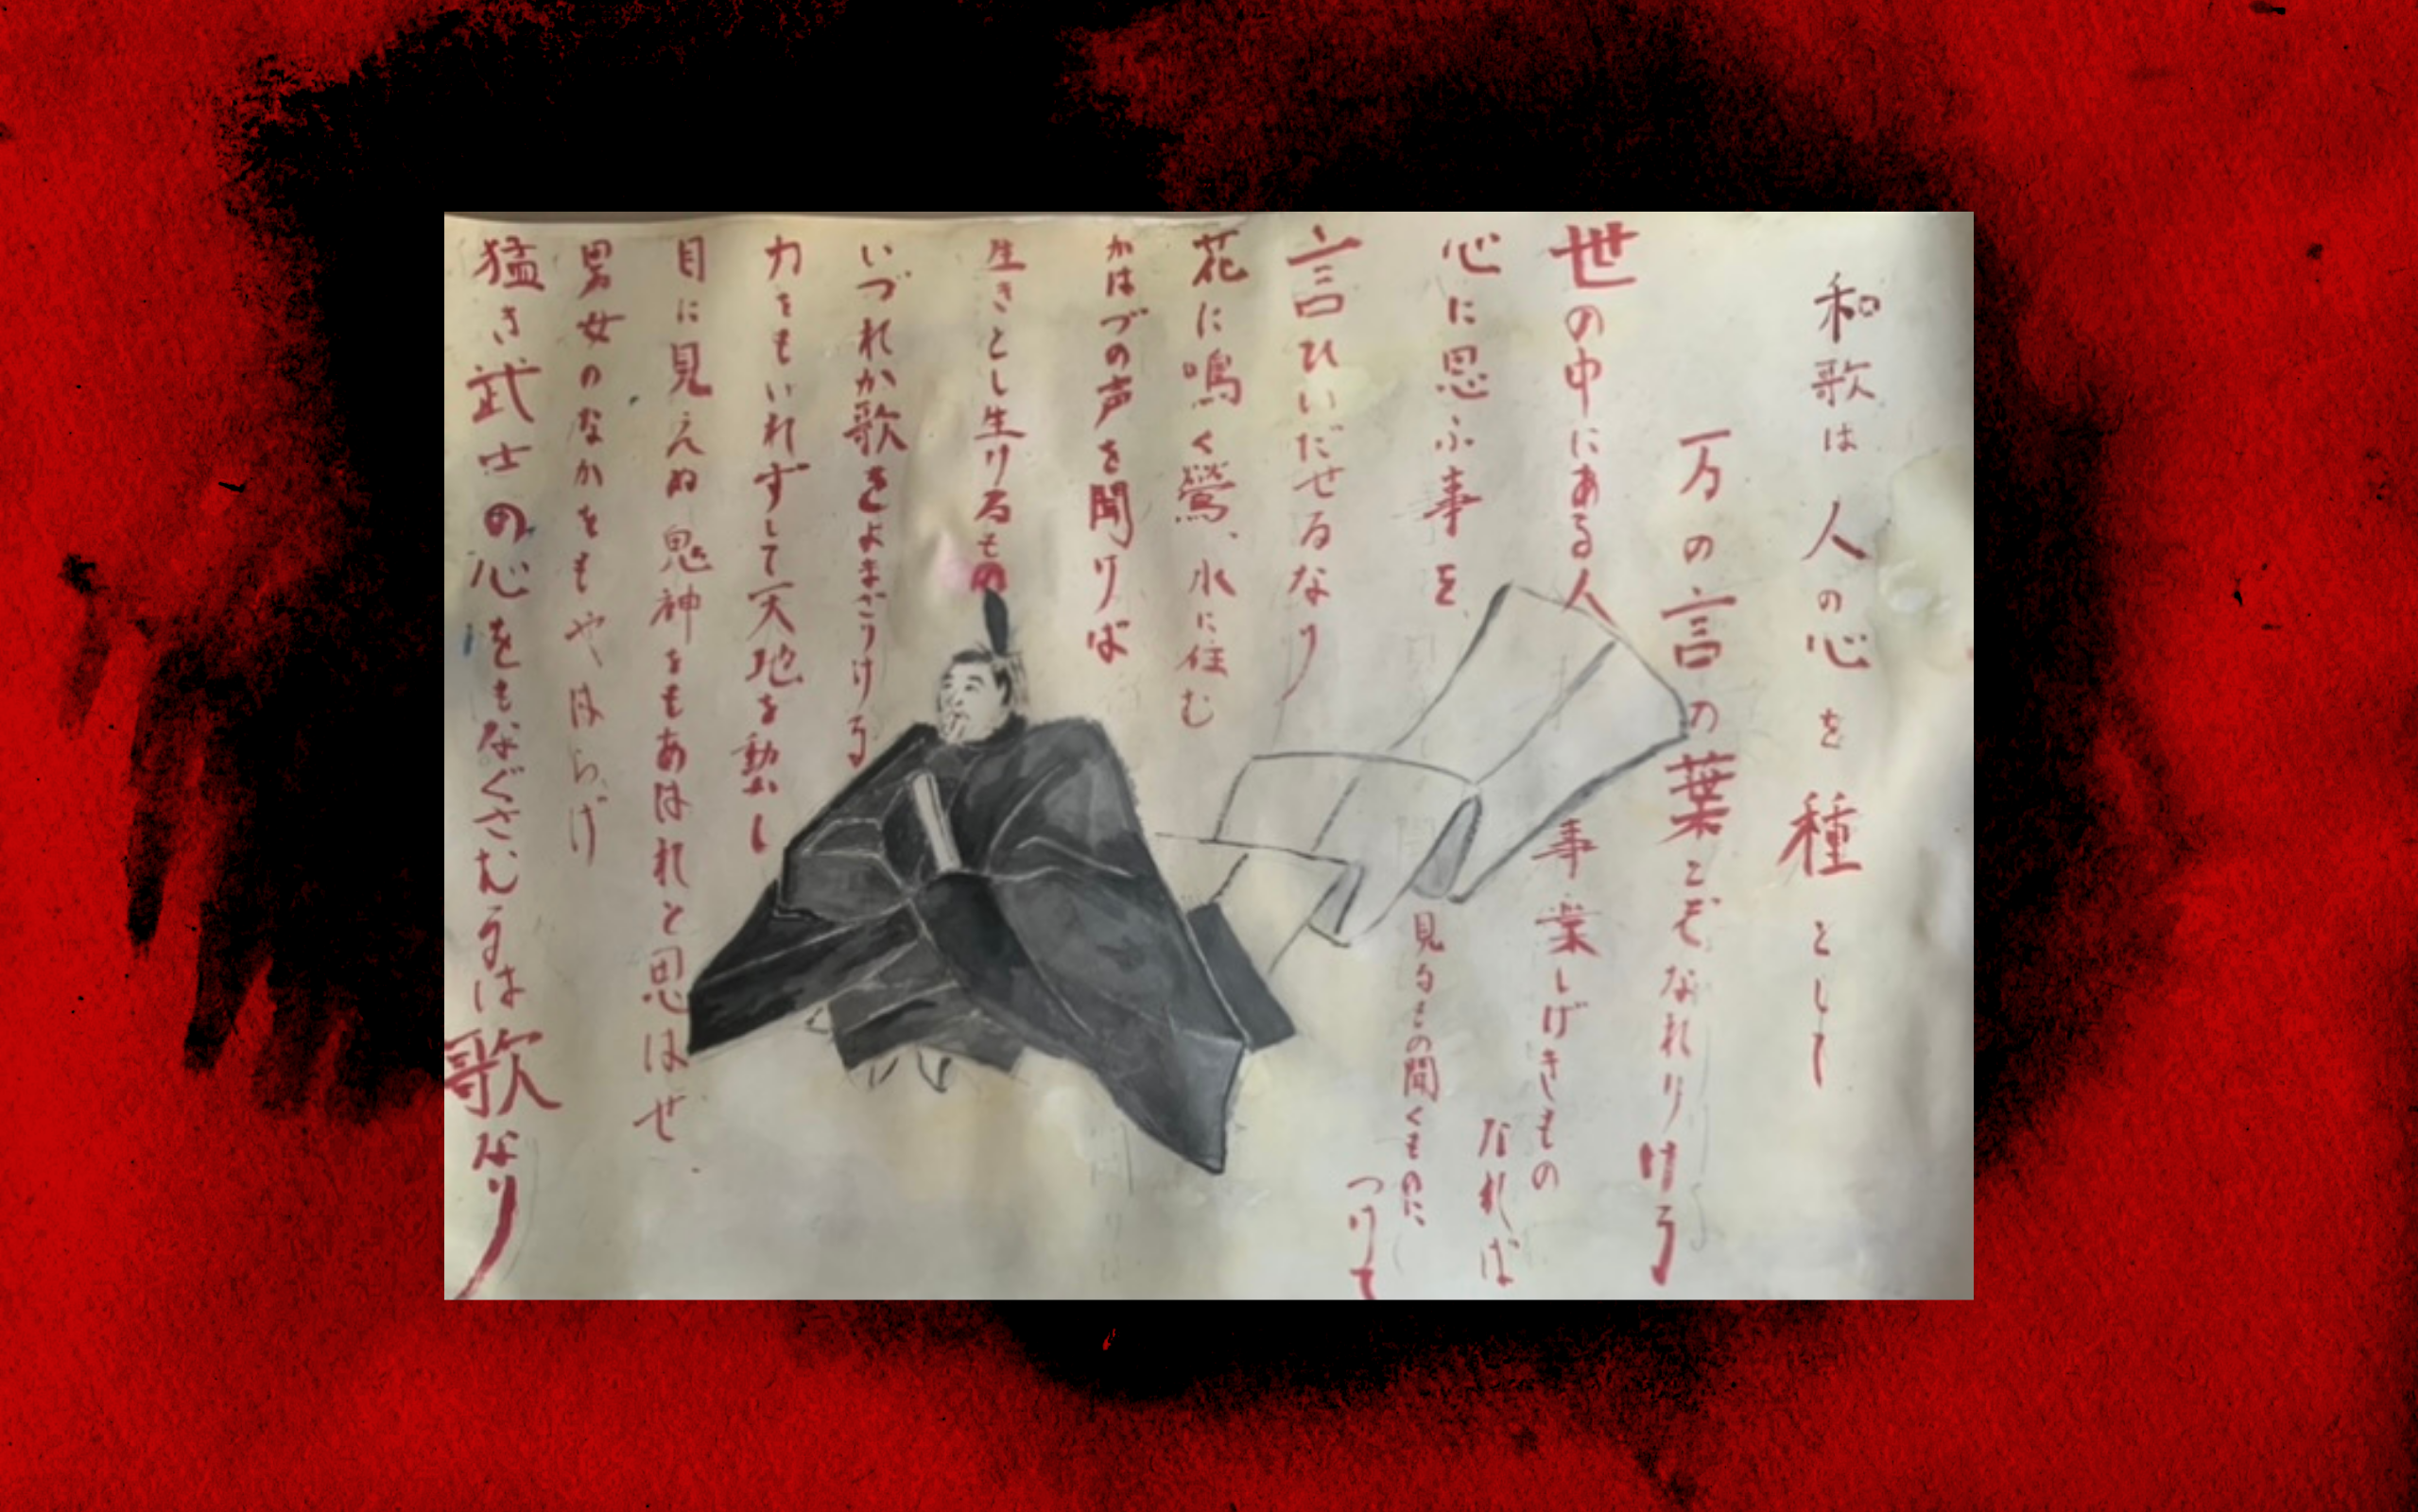 和歌は人の心を種として
万の言の葉とぞなれりける
世の中にある人
事業しげきもの
なれば
心に思ふ事を
見るもの聞くものに
つけて
言ひいだせるなり
花に鳴く鶯、水に住む
かはづの声を聞けば
生きとし生けるもの
いづれか歌をよまざりける
力をもいれずして天地を動かし
目に見えぬ鬼神をもあはれと思はせ、
男女のなかをもやはらげ
猛き武士の心をもなぐさむるは歌なり